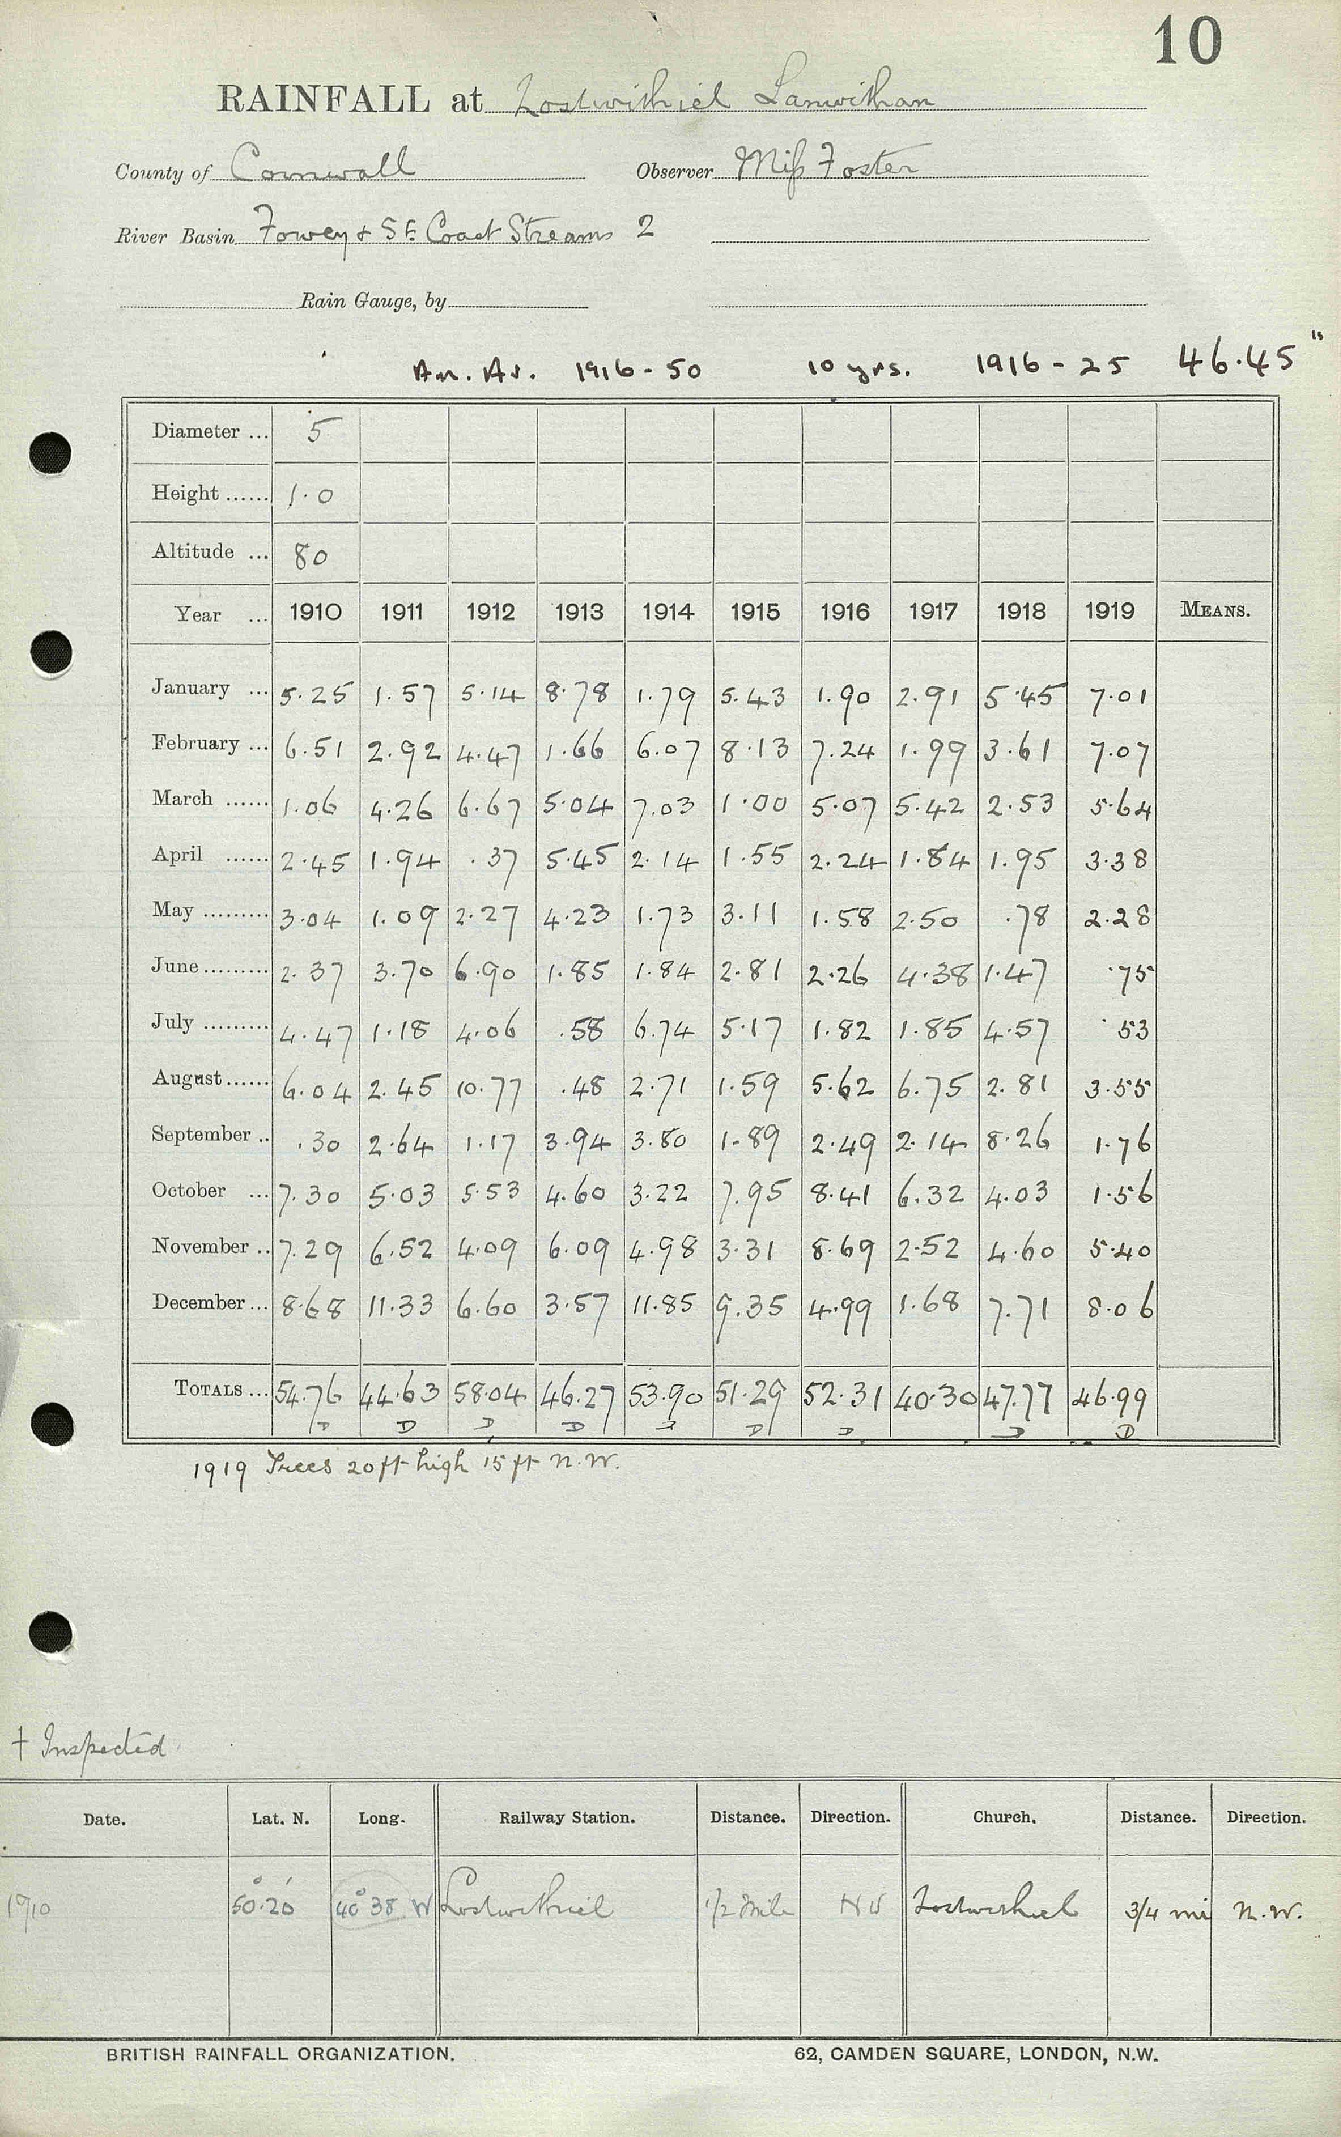 10
RAINFALL at Lostwithiel Lanwithan
County of Cornwall Observer Miss Foster
River Basin Fowey & S E Coast Streams 2
Rain Gauge, by
An. Av. 1916-50 10 yrs. 1916-25 46.45"
Diameter ... 5
Height ...... 1.0
Altitude ... 80
Year ... 1910 1911 1912 1913 1914 1915 1916 1917 1918 1919 MEANS.
January ... 5.25 1.57 5.14 8.78 1.79 5.43 1.90 2.91 5.45 7.01
February ... 6.51 2.92 4.47 1.66 6.07 8.13 7.24 1.99 3.61 7.07
March ...... 1.06 4.26 6.67 5.04 7.03 1.00 5.07 5.42 2.53 5.64
April ...... 2.45 1.94 .37 5.45 2.14 1.55 2.24 1.84 1.95 3.38
May ......... 3.04 1.09 2.27 4.23 1.73 3.11 1.58 2.50 .78 2.28
June ......... 2.37 3.70 6.90 1.85 1.84 2.81 2.26 4.38 1.47 .75
July ......... 4.47 1.18 4.06 .58 6.74 5.17 1.82 1.85 4.57 .53
August ...... 6.04 2.45 10.77 .48 2.71 1.59 5.62 6.75 2.81 3.55
September .. .30 2.64 1.17 3.94 3.80 1.89 2.49 2.14 8.26 1.76
October ... 7.30 5.03 5.53 4.60 3.22 7.95 8.41 6.32 4.03 1.56
November .. 7.29 6.52 4.09 6.09 4.98 3.31 8.69 2.52 4.60 5.40
December ... 8.68 11.33 6.60 3.57 11.85 9.35 4.99 1.68 7.71 8.06
TOTALS ... 54.76 44.63 58.04 46.27 53.90 51.29 52.31 40.30 47.77 46.99
D D D D D D D D D
1919 Trees 20ft high 15 ft N.W.
† Inspected
Date. Lat. N. Long. Railway Station. Distance. Direction. Church. Distance. Direction.
1910 50°20' 4°38 W Lostwithiel 1/2 Mile NW Lostwithiel 3/4 mi N.W.
BRITISH RAINFALL ORGANIZATION. 62, CAMDEN SQUARE, LONDON, N.W.